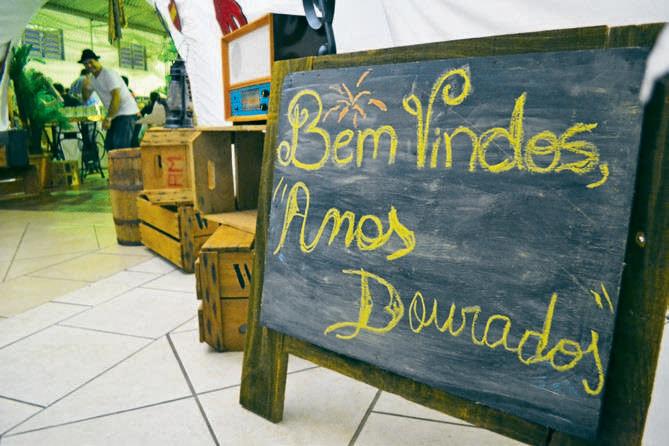 Bem Vindos,
"Anos
Dourados"